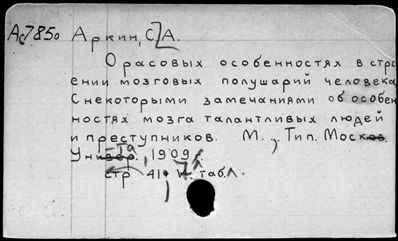 Ас7850 Аркин, С.А.
О расовых особенностях в стро
ении мозговых полушарий человека
С некоторыми замечаниями об особен
ностях мозга талантливых людей
и преступников. М., Тип. Моск.
Унив, 1909
стр 41 табл.